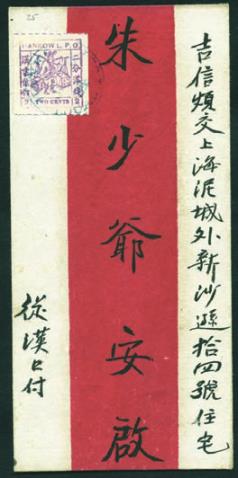 吉信煩交上海泥城外新沙遜拾四號住宅
朱少爺安啟
從漢口付
25
HANKOW L.P.O.
TWO CENTS